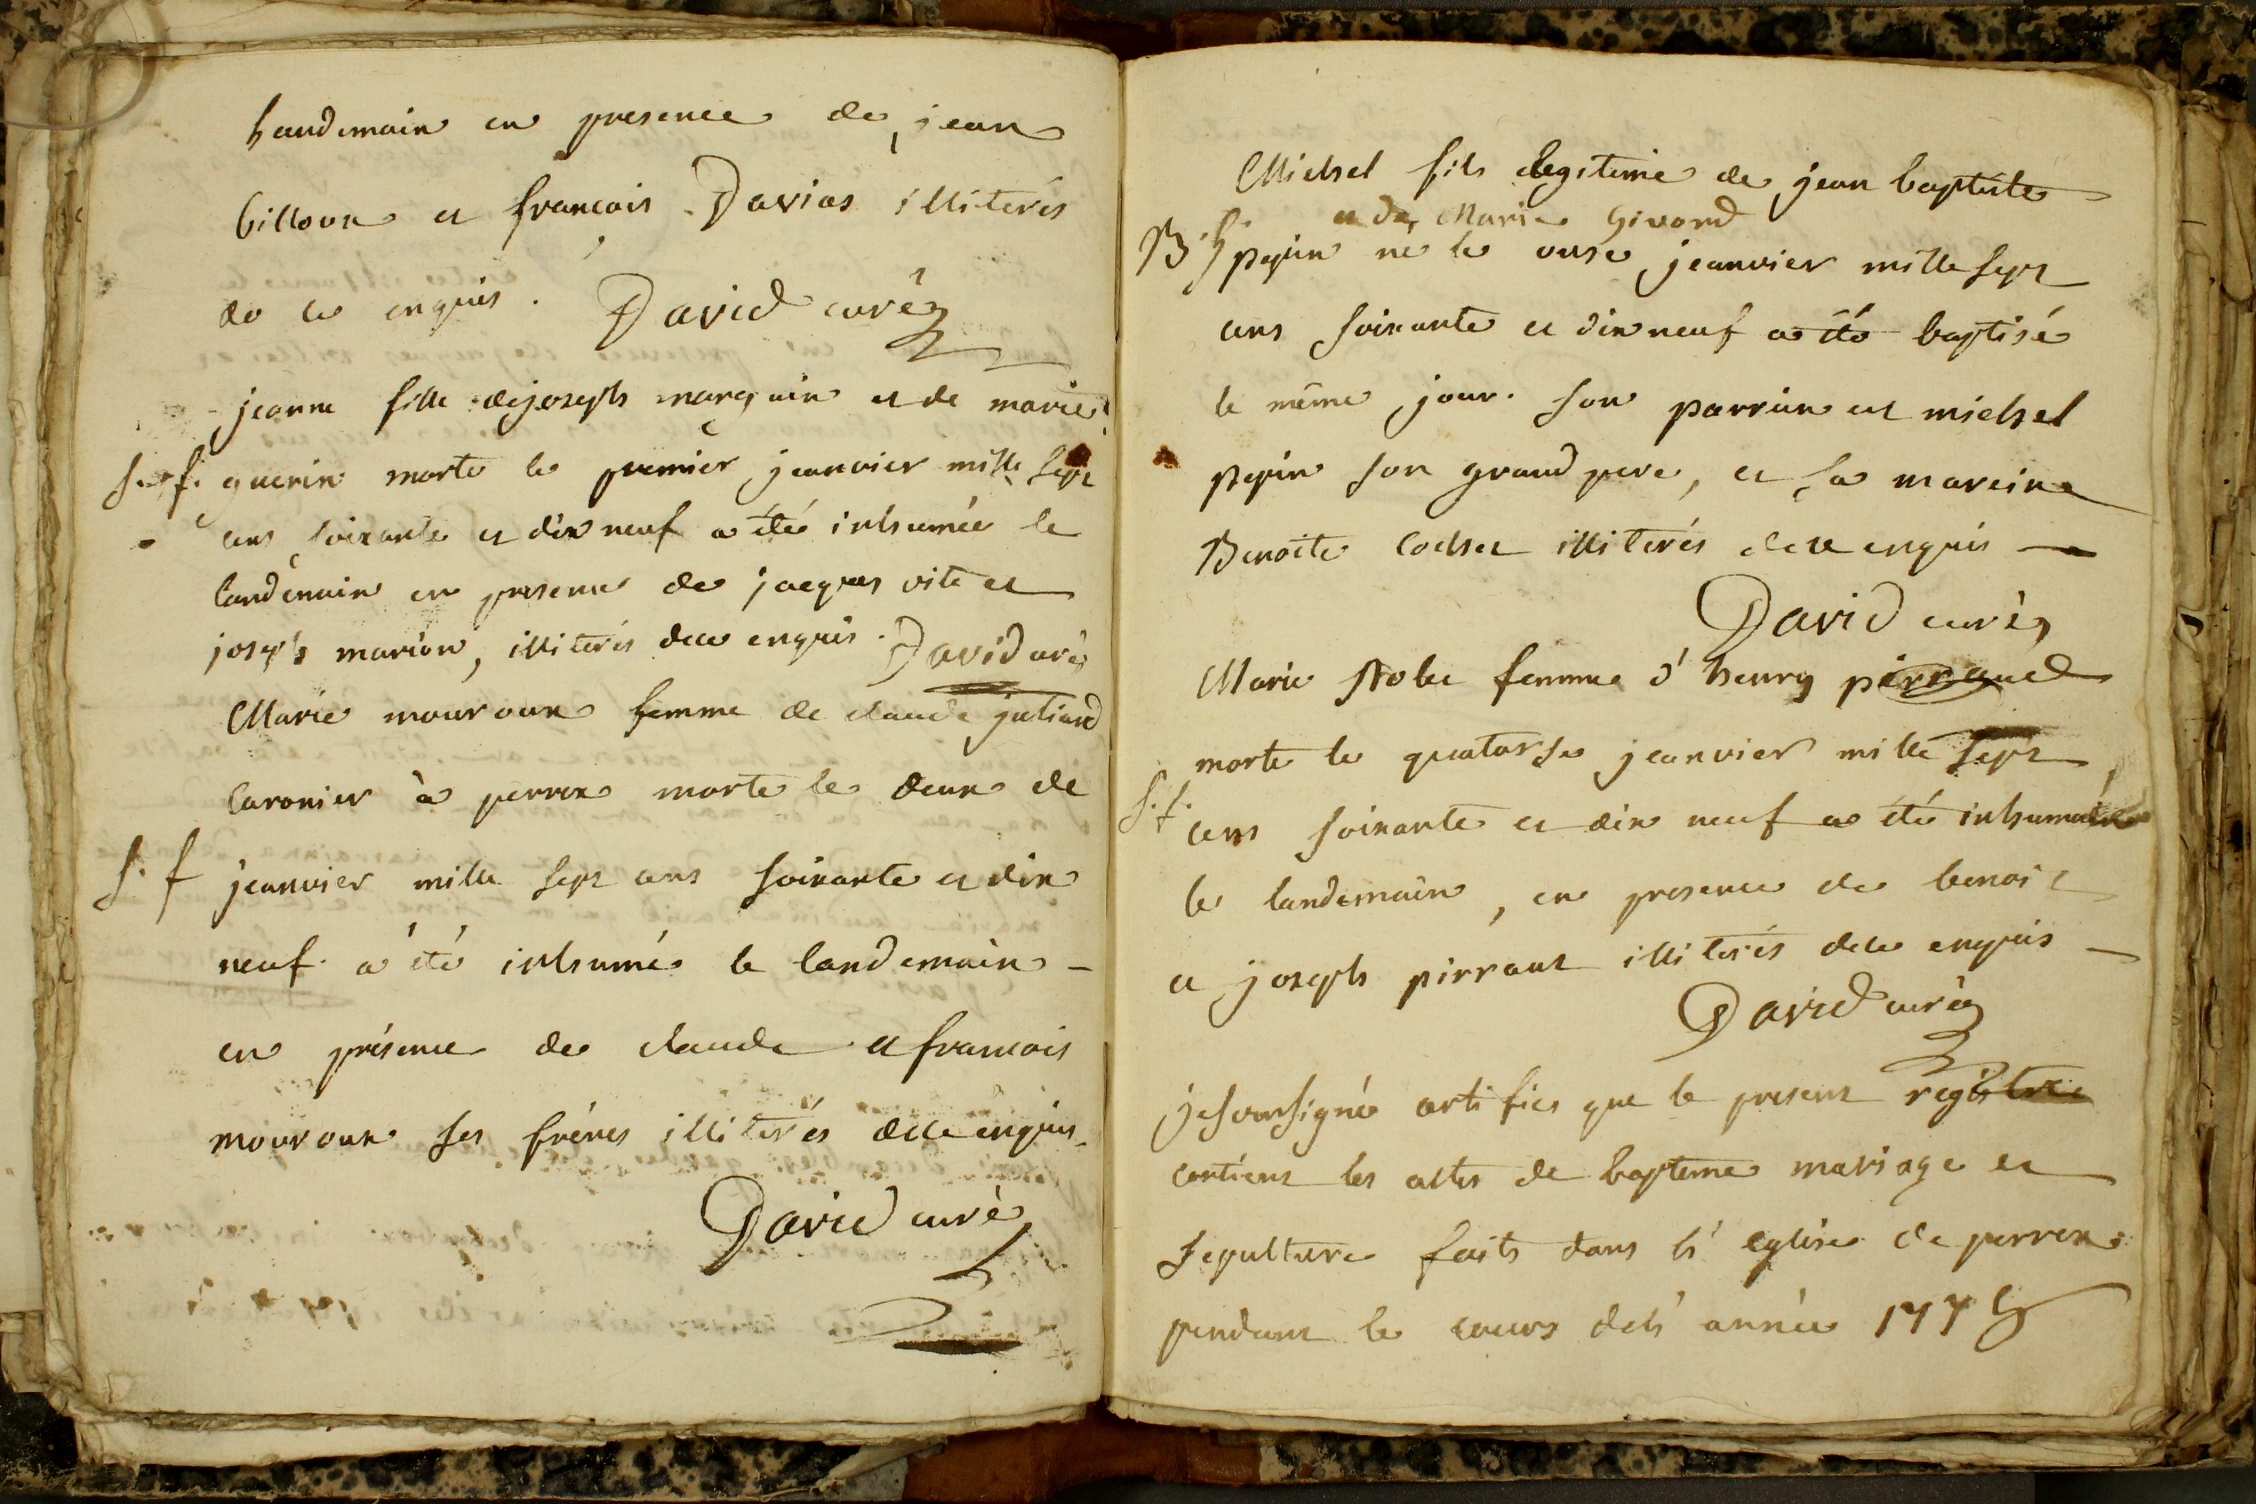 handemain en presence de jean
billoux et francois Davias illiterés
de ce enquis. David curé
jeanne fille de joseph marguin et de marie
S. f. guerin morte le premier jeanvier mille sept
cens soixante et dix neuf a été inhumée le
landemain en presence de jacques vite et
joseph marion, illiterés de ce enquis. David curé
Marie mouroux femme de claude juliard
caronier à perrex morte le deux de
S. f jeanvier mille sept cens soixante et dix
neuf a été inhumé le landemain -
en présence de claude et francois
mouroux ses fréres illiterés de ce enquis
David curé
Michel fils legitime de jean baptiste
et de Marie Givord
B. f. pepin né le onse jeanvier mille sept
cens soixante et dix neuf a été baptisé
le même jour. son parrain est michel
pepin son grand pere, et sa mareine
Benoite cochet illiterés de ce enquis —
David curé
Marie Nobe femme d'henry pirraud
morte le quatorse jeanvier mille sept
S. f. cens soixante et dix neuf a été inhumée
le landemain, en presence de benoit
et joseph pirraut illiterés de ce enquis —
David curé
je soussigné certifies que le present registre
contient les actes de bapteme mariage et
sepulture faits dans l'eglise de perrex
pendant le cours de l'année 1778